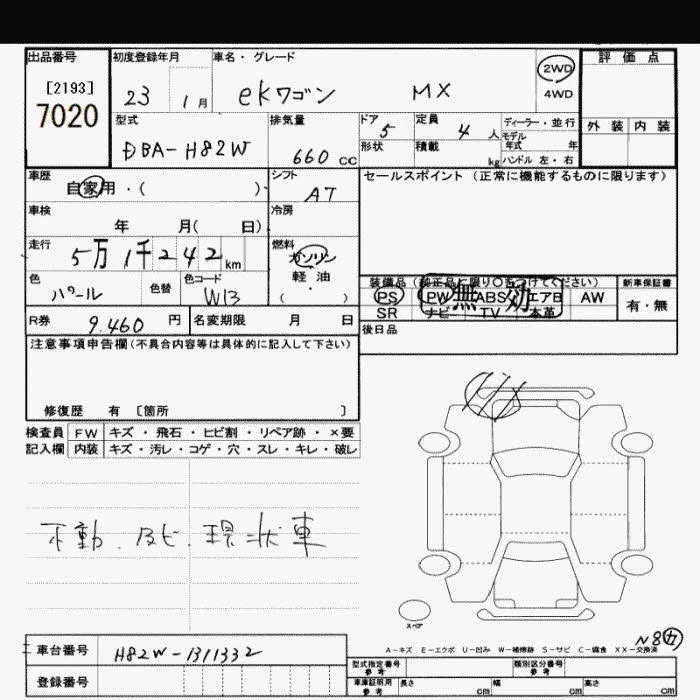 出品番号 初度登録年月 車名・グレード 評価点
[2193] 7020 23 1月 ekワゴン MX 2WD 4WD
外装 内装
型式 排気量 ドア 定員 ディーラー・並行
DBA-H82W 660 CC 5 4人 モデル年式 年
形状 積載 kg ハンドル 左・右
車歴 シフト セールスポイント(正常に機能するものに限ります)
自家用・( ) AT
車検 冷房
年 月( 日)
走行 燃料
5万1千242km ガソリン
軽・油
( )
色 色替 色コード
パール W13
装備品(純正品に限り○をつけてください) 新車保証書
PS PW ABS エアB AW 有・無
無効
SR ナビ TV 本革
R券 9.460円 名変期限 月 日
後日品
注意事項申告欄(不具合内容等は具体的に記入して下さい)
修復歴 有 〔箇所 〕
検査員 FW キズ・飛石・ヒビ割・リペア跡・×要
記入欄 内装 キズ・汚レ・コゲ・穴・スレ・キレ・破レ
不動.サビ.現状車
スペア
A-キズ E-エクボ U-凹み W-補修跡 S-サビ C-腐食 XX-交換済
車台番号 H82W-1311332
登録番号
型式指定番号 参考 類別区分番号 参考
車庫証明用 参考 長さ cm 幅 cm 高さ cm